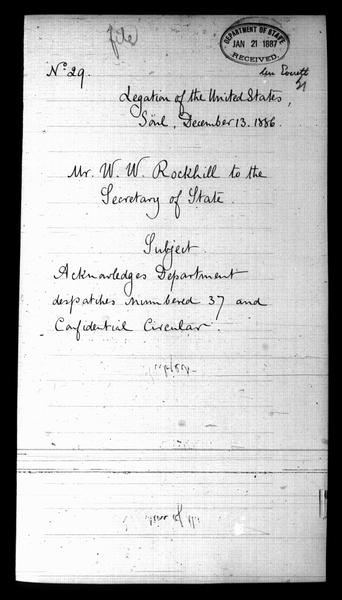 file
DEPARTMENT OF STATE
JAN 21 1887
RECEIVED.
No 29.
Legation of the United States,
Söul, December 13. 1886.
Mr. W. W. Rockhill to the
Secretary of State.
Subject.
Acknowledges Department
despatches numbered 37 and
Confidential Circular.